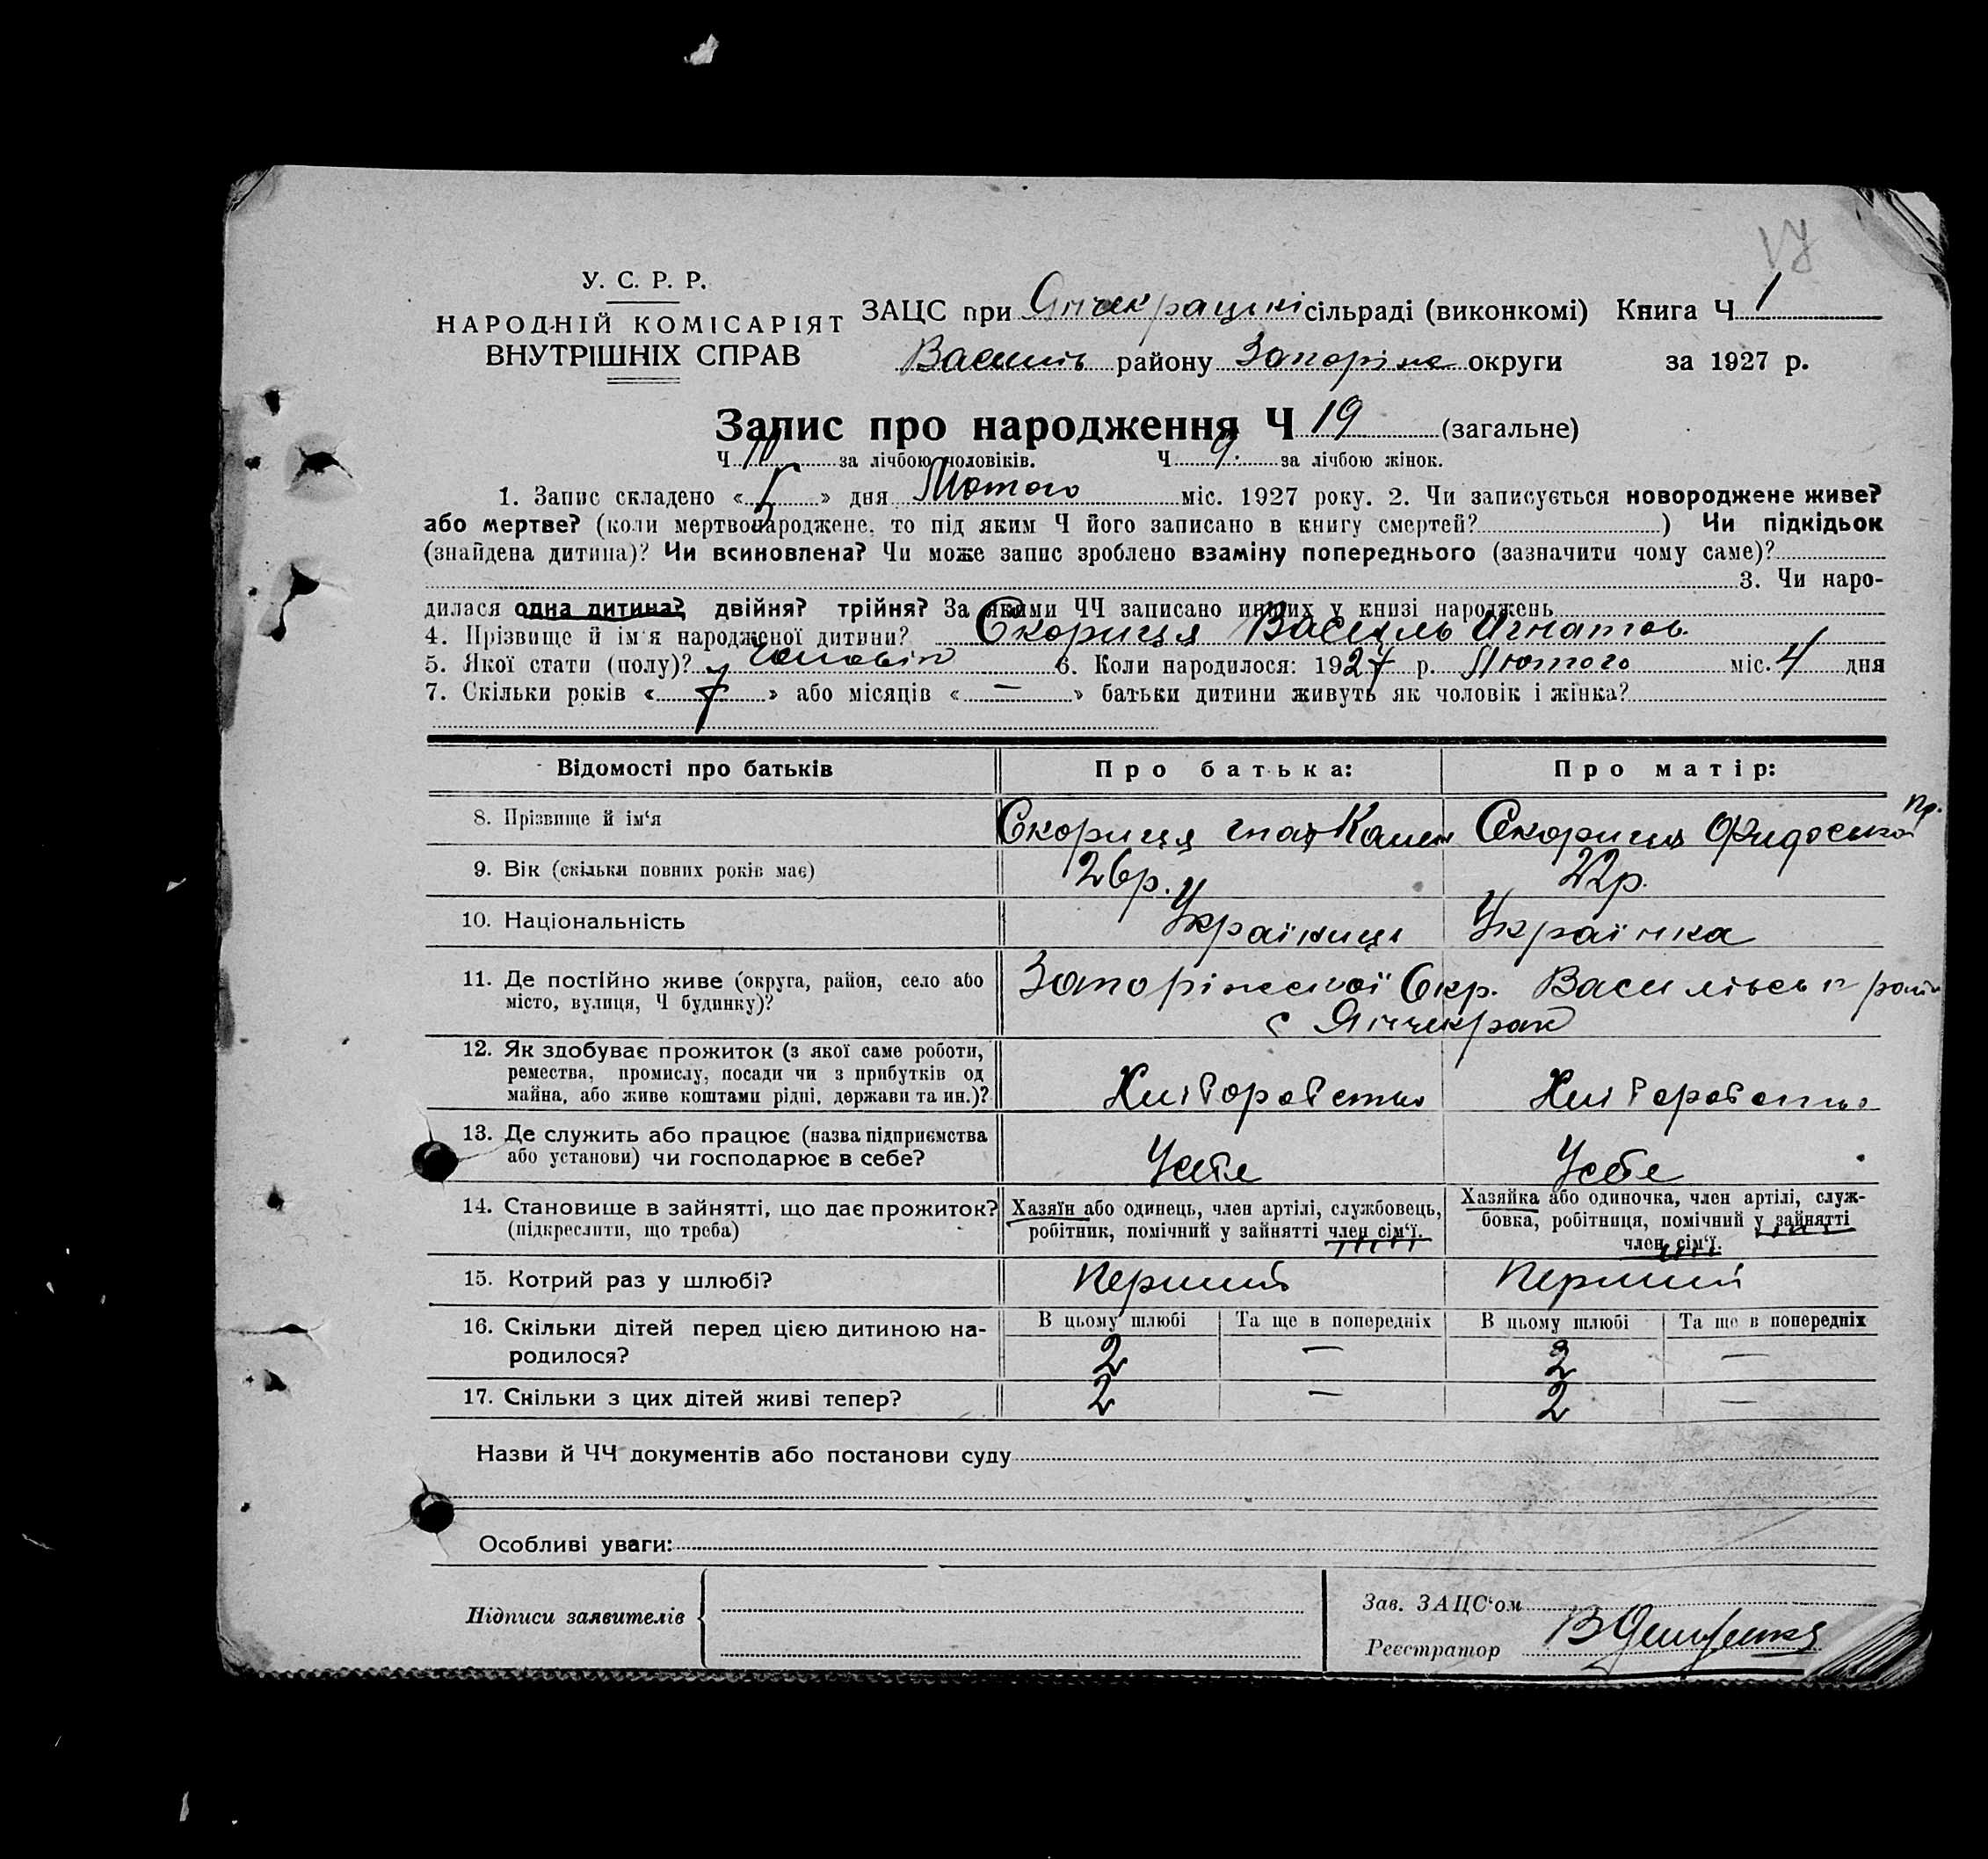 У. С. Р. Р.
НАРОДНІЙ КОМІСАРІЯТ
ВНУТРІШНІХ СПРАВ
ЗАЦС при Янчекрацькі сільраді (виконкомі) Книга Ч 1
Василів району Запоріж округи за 1927 р.
Запис про народження Ч 19 (загальне)
Ч 10 за лічбою чоловіків. Ч 9. за лічбою жінок.
1. Запис складено « 5 » дня Лютого міс. 1927 року. 2. Чи записується новороджене живе?
або мертве? (коли мертвонароджене, то під яким Ч його записано в книгу смертей? ) Чи підкідьок
(знайдена дитина)? Чи всиновлена? Чи може запис зроблено взаміну попереднього (зазначити чому саме)?
3. Чи наро-
дилася одна дитина? двійня? трійня? За якими ЧЧ записано инших у книзі народжень
4. Прізвище й ім'я народженої дитини? Скориця Василь Игнатов.
5. Якої стати (полу)? чоловік 6. Коли народилося: 1927 р. Лютого міс. 4 дня
7. Скільки років « 7 » або місяців « — » батьки дитини живуть як чоловік і жінка?
Відомості про батьків Про батька: Про матір:
8. Прізвище й ім‘я Скориця Скориця Фидоська Пр.
9. Вік (скільки повних років має) 26р. 22р.
10. Національність Українець Українка
11. Де постійно живе (округа, район, село або Запоріжської Окр. Василівськ рай
місто, вулиця, Ч будинку)? с Янчекрак
12. Як здобуває прожиток (з якої саме роботи,
ремества, промислу, посади чи з прибутків од
майна, або живе коштами рідні, держави та ин.)? Хліборобство Хліборобство
13. Де служить або працює (назва підприємства
або установи) чи господарює в себе? Усебе Усебе
14. Становище в зайнятті, що дає прожиток? Хазяїн або одинець, член артілі, службовець, Хазяйка або одиночка, член артілі, служ-
(підкреслити, що треба) робітник, помічний у зайнятті член сім‘ї. бовка, робітниця, помічний у зайнятті
член сім‘ї.
15. Котрий раз у шлюбі? Перший Перший
16. Скільки дітей перед цією дитиною на- В цьому шлюбі Та ще в попередніх В цьому шлюбі Та ще в попередніх
родилося? 2 — 2 —
17. Скільки з цих дітей живі тепер? 2 — 2 —
Назви й ЧЧ документів або постанови суду
Особливі уваги:
Підписи заявителів
Зав. ЗАЦС‘ом
Реєстратор